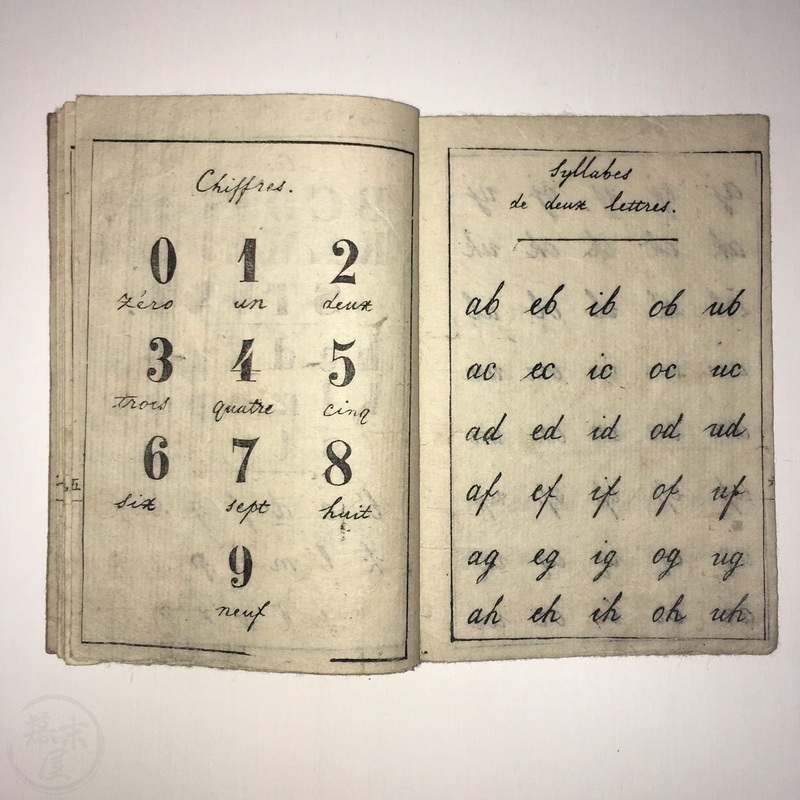 Chiffres.
0 1 2
zéro un deux
3 4 5
trois quatre cinq
6 7 8
six sept huit
9
neuf
Syllabes
de deux lettres.
ab eb ib ob ub
ac ec ic oc uc
ad ed id od ud
af ef if of uf
ag eg ig og ug
ah eh ih oh uh
幕末
屋